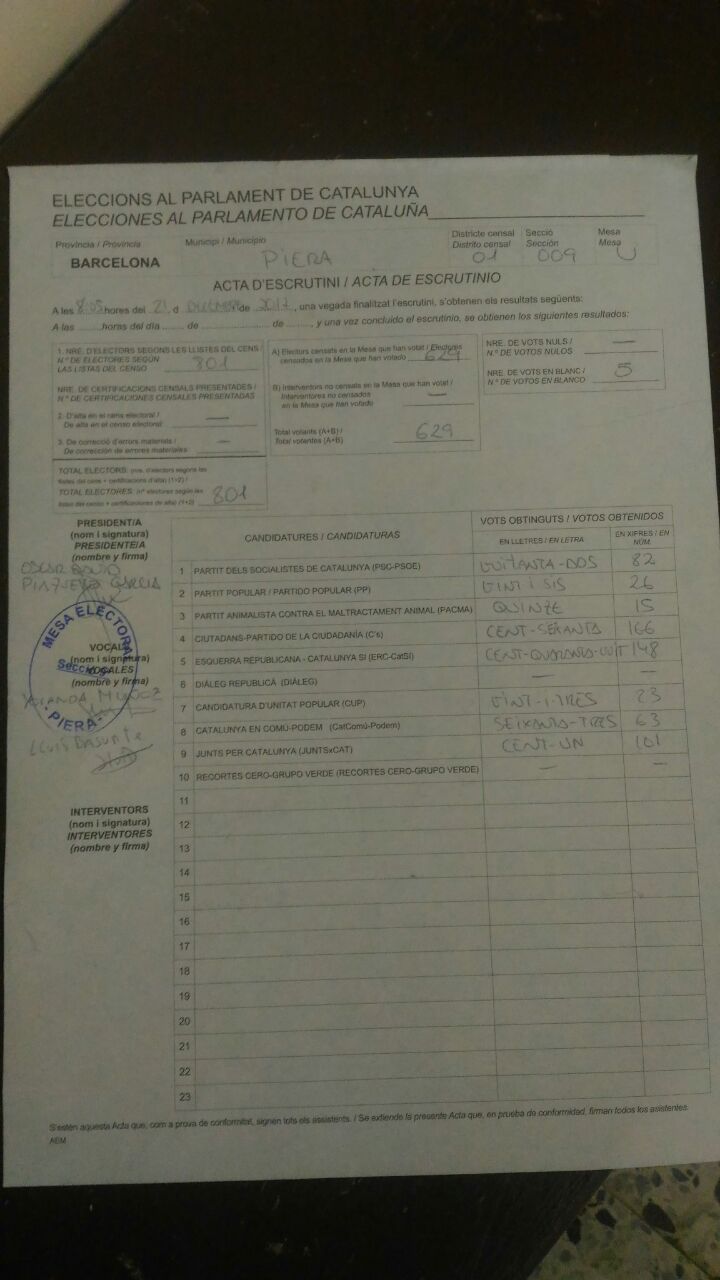 ELECCIONS AL PARLAMENT DE CATALUNYA
ELECCIONES AL PARLAMENTO DE CATALUÑA
Província / Provincia
BARCELONA
Municipi / Municipio
PIERA
Districte censal
Distrito censal
01
Secció
Sección
009
Mesa
Mesa
U
ACTA D'ESCRUTINI / ACTA DE ESCRUTINIO
A les hores del 21 d de 2017, una vegada finalitzat l'escrutini, s'obtenen els resultats següents:
A las ......horas del día ...... de .................... de ........, y una vez concluido el escrutinio, se obtienen los siguientes resultados:
1. NRE. D'ELECTORS SEGONS LES LLISTES DEL CENS /
N.º DE ELECTORES SEGÚN
LAS LISTAS DEL CENSO 801
NRE. DE CERTIFICACIONS CENSALS PRESENTADES /
N.º DE CERTIFICACIONES CENSALES PRESENTADAS
2. D'alta en el cens electoral / —
De alta en el censo electoral
3. De correcció d'errors materials / —
De corrección de errores materiales
TOTAL ELECTORS: (nre. d'electors segons les
llistes del cens + certificacions d'alta) (1+2) /
TOTAL ELECTORES: (nº electores según las
listas del censo + certificaciones de alta) (1+2) 801
A) Electors censats en la Mesa que han votat / Electores
censados en la Mesa que han votado 629
B) Interventors no censats en la Mesa que han votat /
Interventores no censados —
en la Mesa que han votado
Total votants (A+B) /
Total votantes (A+B) 629
NRE. DE VOTS NULS / —
N.º DE VOTOS NULOS
NRE. DE VOTS EN BLANC / 5
N.º DE VOTOS EN BLANCO
PRESIDENT/A
(nom i signatura)
PRESIDENTE/A
(nombre y firma)
GARCIA
MESA ELECTORAL
Secció 9
- PIERA -
VOCALS
(nom i signatura)
VOCALES
(nombre y firma)
YOLANDA MUÑOZ
LLUIS
INTERVENTORS
(nom i signatura)
INTERVENTORES
(nombre y firma)
CANDIDATURES / CANDIDATURAS
VOTS OBTINGUTS / VOTOS OBTENIDOS
EN LLETRES / EN LETRA
EN XIFRES / EN NÚM.
1 PARTIT DELS SOCIALISTES DE CATALUNYA (PSC-PSOE) VUITANTA-DOS 82
2 PARTIT POPULAR / PARTIDO POPULAR (PP) VINT I SIS 26
3 PARTIT ANIMALISTA CONTRA EL MALTRACTAMENT ANIMAL (PACMA) QUINZE 15
4 CIUTADANS-PARTIDO DE LA CIUDADANÍA (C's) CENT-SEIXANTA 166
5 ESQUERRA REPUBLICANA - CATALUNYA SÍ (ERC-CatSÍ) CENT-QUARANTA-VUIT 148
6 DIÀLEG REPUBLICÀ (DIÀLEG) — —
7 CANDIDATURA D'UNITAT POPULAR (CUP) VINT-I-TRES 23
8 CATALUNYA EN COMÚ-PODEM (CatComú-Podem) SEIXANTA-TRES 63
9 JUNTS PER CATALUNYA (JUNTSxCAT) CENT-UN 101
10 RECORTES CERO-GRUPO VERDE (RECORTES CERO-GRUPO VERDE) — —
11
12
13
14
15
16
17
18
19
20
21
22
23
S'estén aquesta Acta que, com a prova de conformitat, signen tots els assistents. / Se extiende la presente Acta que, en prueba de conformidad, firman todos los asistentes.
AEM